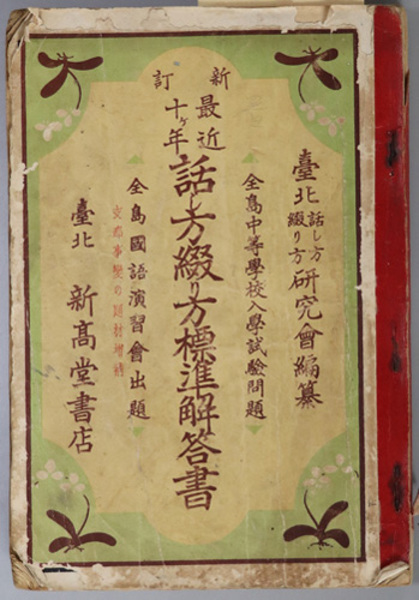 新訂
臺北話し方綴り方研究會編纂
全島中等學校入學試驗問題
最近十ヶ年話し方綴り方標準解答書
全島國語演習會出題
支那事變の題材增補
臺北 新高堂書店